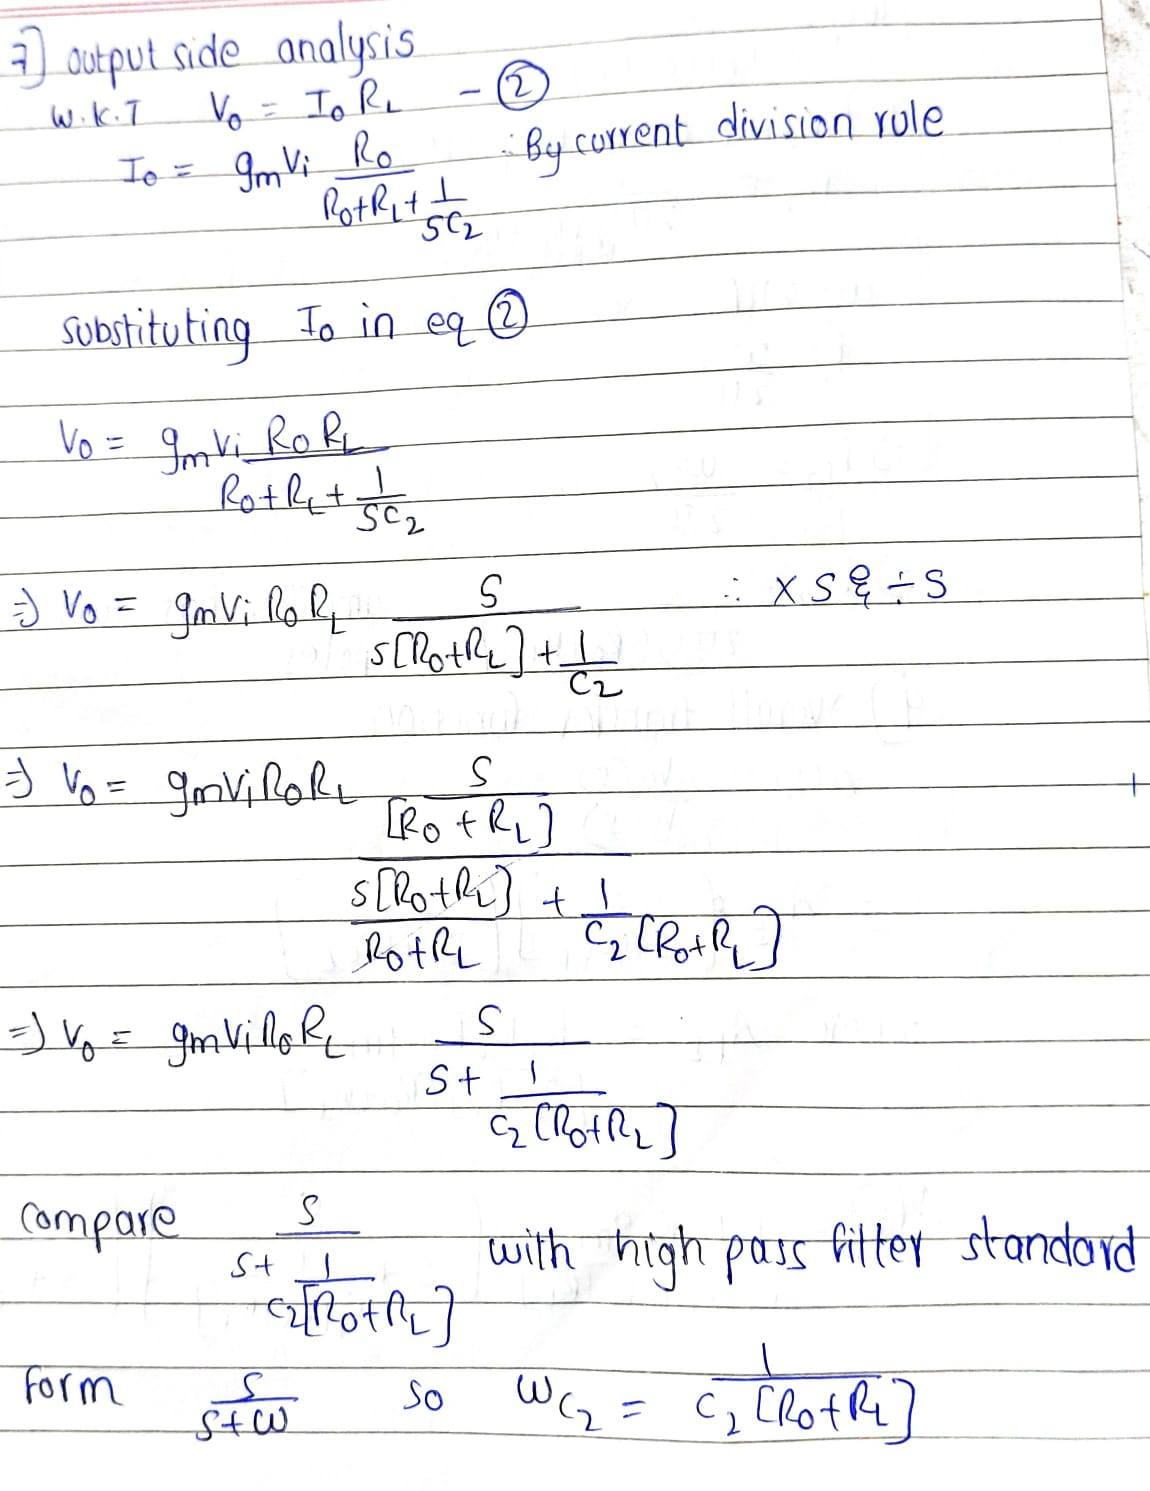 7] output side analysis
W.K.T Vo = Io RL - ②
Io = gmVi Ro / (Ro+RL+ 1/SC2) ∴ By current division rule
substituting Io in eq ②
Vo = gmVi Ro RL / (Ro+RL+ 1/SC2)
=> Vo = gmVi Ro RL S / (S[Ro+RL] + 1/C2) ∴ × S & ÷ S
=> Vo = gmVi Ro RL (S / [Ro + RL]) / (S[Ro+RL] / Ro+RL + 1 / C2[Ro+RL])
=> Vo = gmVi Ro RL S / (S + 1 / C2[Ro+RL])
compare S / (S + 1 / C2[Ro+RL]) with high pass filter standard
form S / S+ω so ωC2 = 1 / C2[Ro+RL]